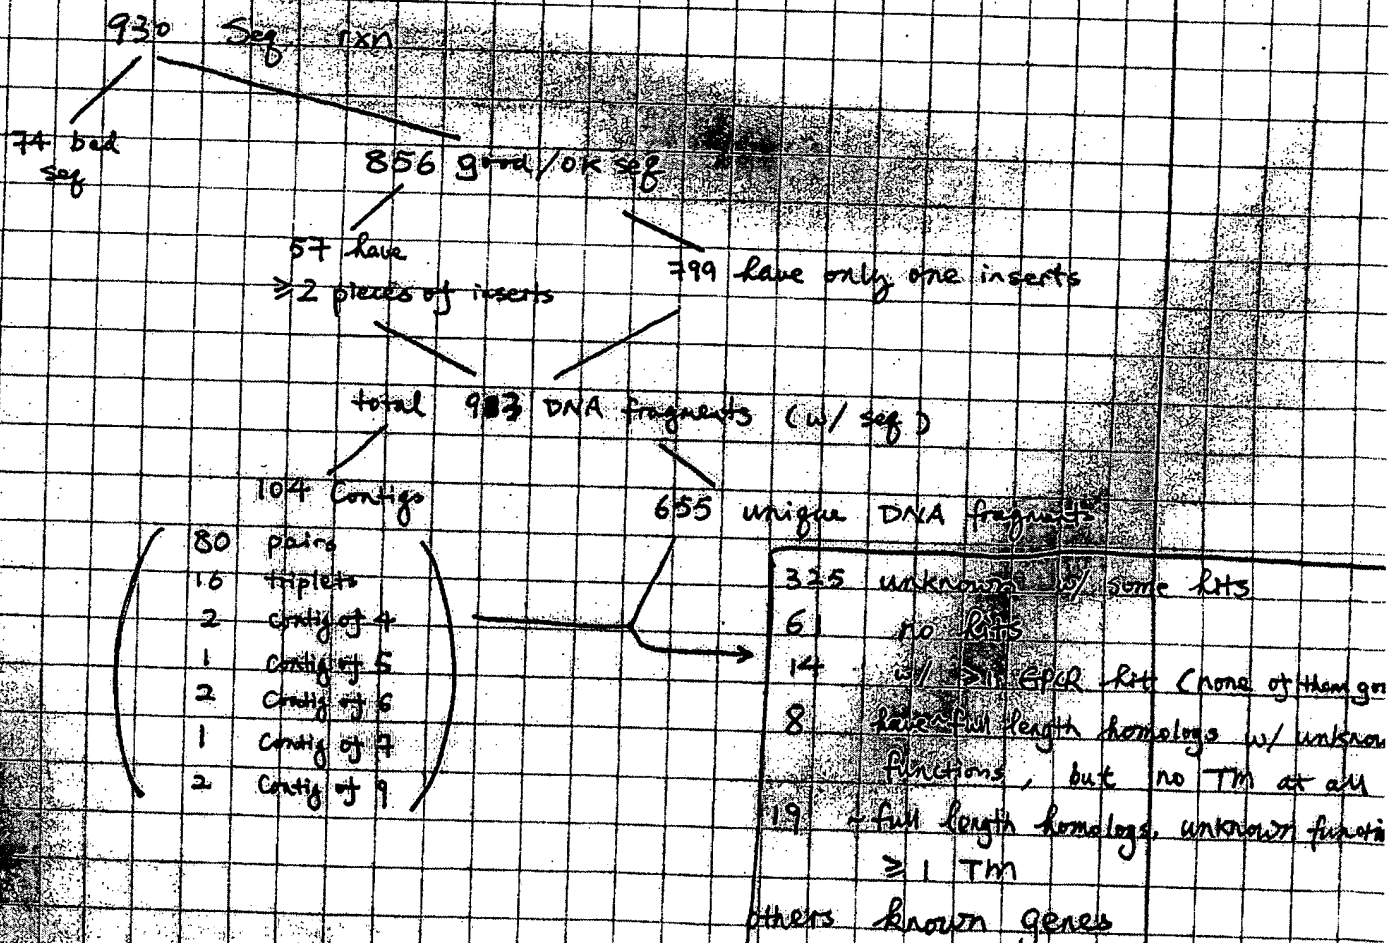 930 Seq rxn
74 bad
seq
856 good/ok seq
57 have
≥2 pieces of inserts
799 have only one inserts
total 913 DNA fragments (w/ seq)
104 Contigs
80 pairs
16 triplets
2 Contig of 4
1 Contig of 5
2 Contig of 6
1 Contig of 7
2 Contig of 9
655 unique DNA fragments
325 unknown w/ some hits
61 no hits
14 w/ ≥1 GPCR hit (none of them
8 have full length homologs w/ unknow
functions, but no TM at all
19 - full length homologs, unknown functi
≥ 1 TM
others known genes